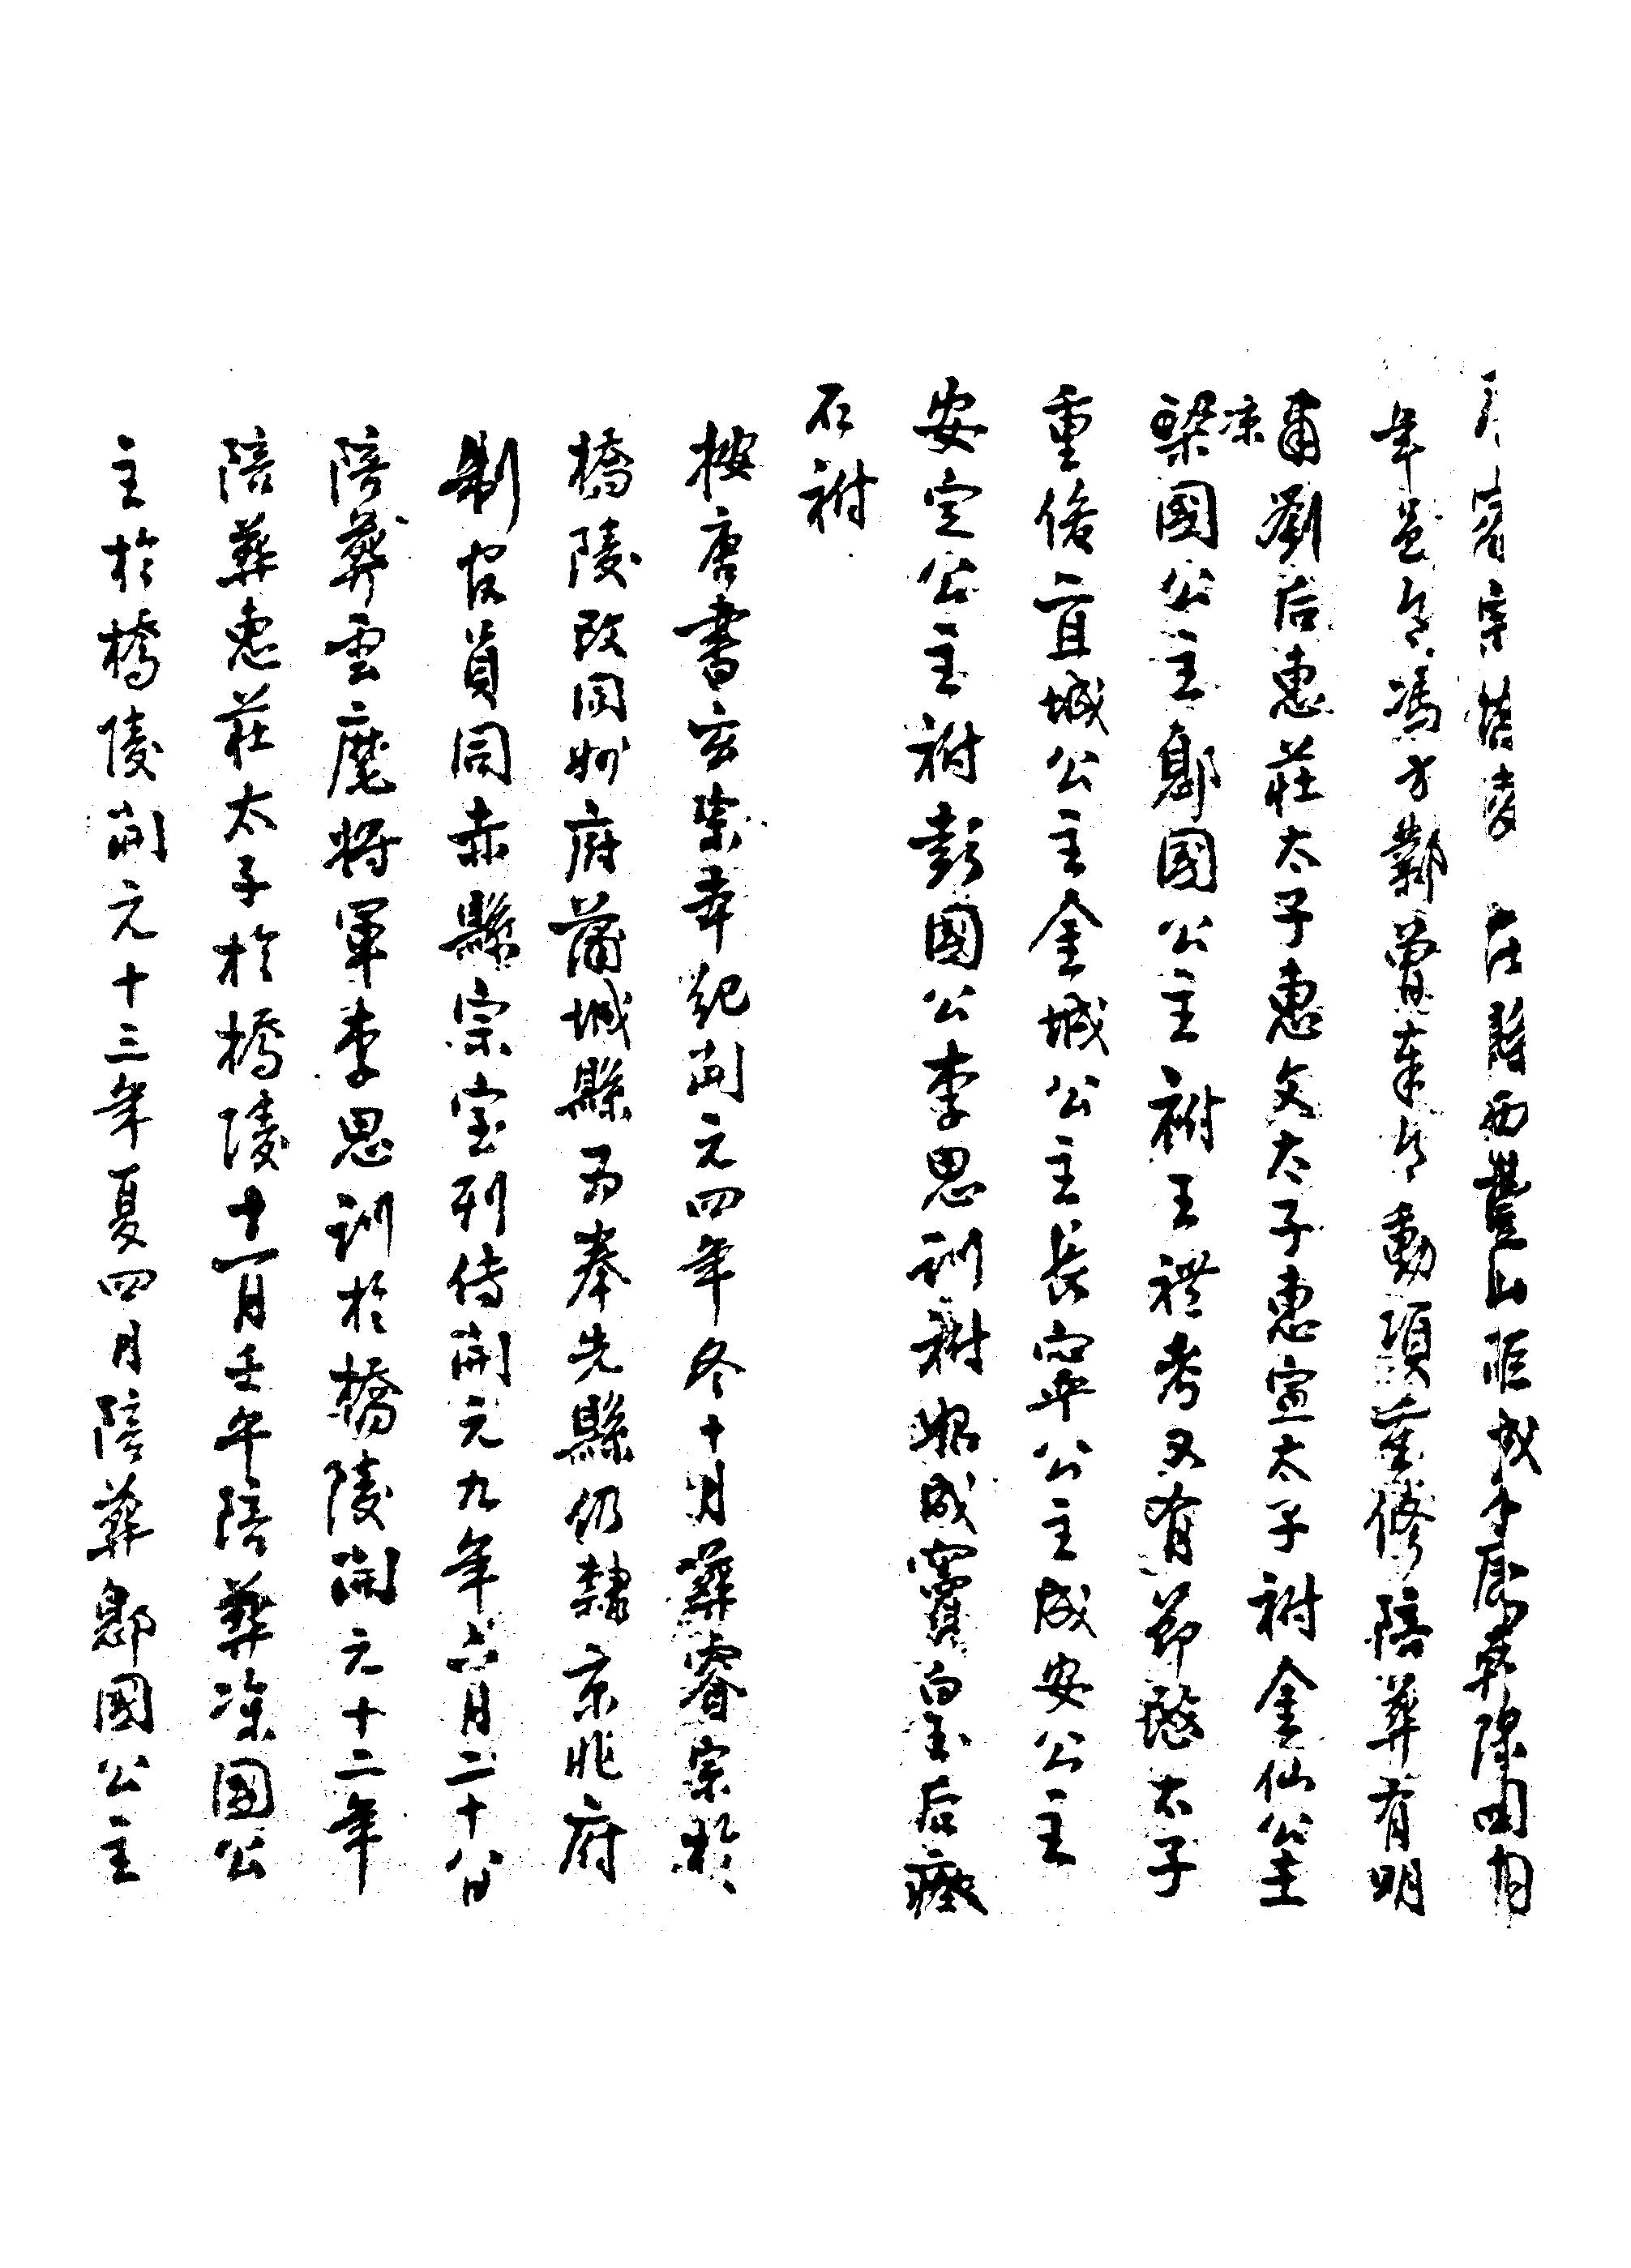 睿宗橋陵 在縣西豐山距城 乾隆四十
年邑令馮方鄴曾奉令動項重修陪葬有明
肅劉后惠莊太子惠文太子惠宣太子祔金仙公主
涼
梁國公主鄎國公主祔王禮考又有節愍太子
重俊宜城公主金城公主長寧公主成安公主
安定公主祔彭國公李思訓祔昭成竇皇后
不祔
按唐書玄宗本紀開元四年冬十月葬睿宗於
橋陵改同州府蒲城縣為奉先縣仍隸京兆府
制官員同赤縣宗室列傳開元九年六月二十八日
陪葬雲麾將軍李思訓於橋陵開元十二年
陪葬惠莊太子於橋陵十一月壬午陪葬涼國公
主於橋陵開元十三年夏四月陪葬鄎國公主